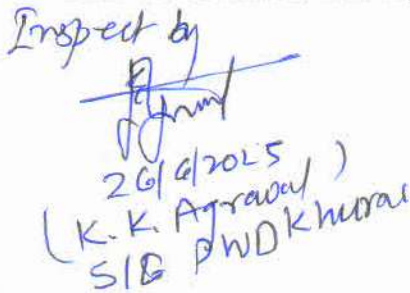 Inspect by
26/6/2025
(K.K. Agrawal)
S/E PWD Khurai